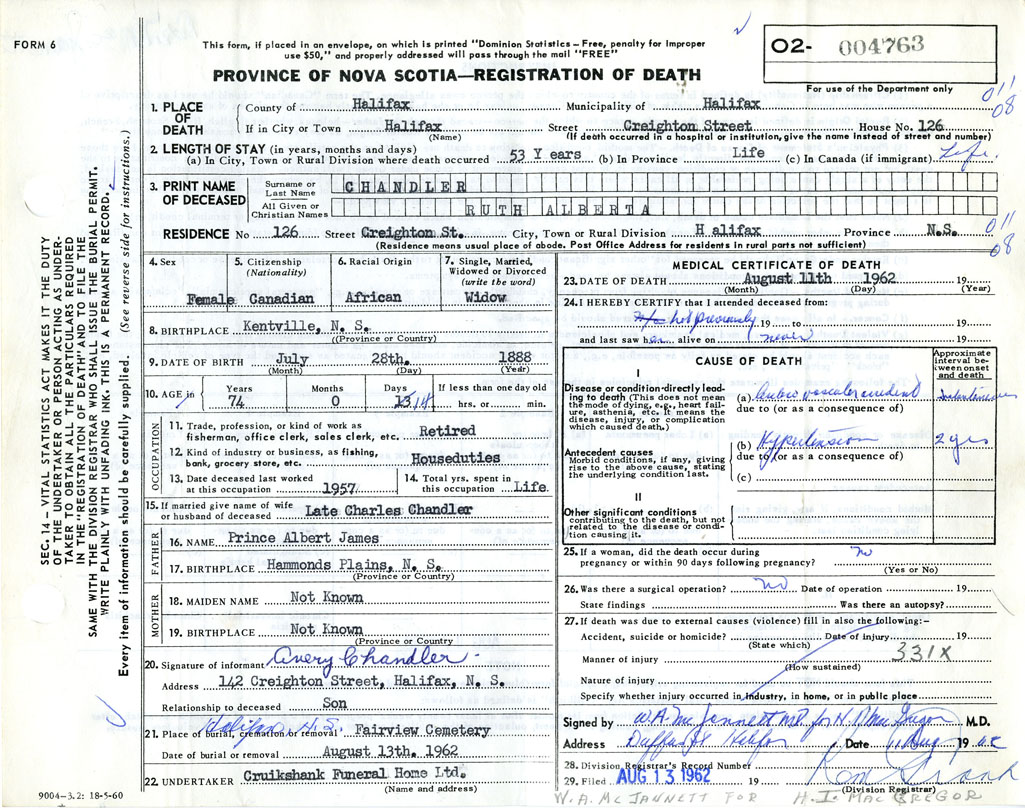 FORM 6
This form, if placed in an envelope, on which is printed "Dominion Statistics – Free, penalty for improper
use $50," and properly addressed will pass through the mail "FREE"
PROVINCE OF NOVA SCOTIA—REGISTRATION OF DEATH
O2- 004763
For use of the Department only
011
08
SEC. 14 – VITAL STATISTICS ACT MAKES IT THE DUTY
OF THE UNDERTAKER OR PERSON ACTING AS UNDER-
TAKER TO OBTAIN ALL THE PARTICULARS REQUIRED
IN THE "REGISTRATION OF DEATH" AND TO FILE THE
SAME WITH THE DIVISION REGISTRAR WHO SHALL ISSUE THE BURIAL PERMIT.
WRITE PLAINLY WITH UNFADING INK. THIS IS A PERMANENT RECORD.
Every item of information should be carefully supplied. (See reverse side for instructions.)
1. PLACE OF DEATH
County of Halifax Municipality of Halifax
If in City or Town Halifax Street Creighton Street House No. 126
(Name) (If death occurred in a hospital or institution, give the name instead of street and number)
2. LENGTH OF STAY (in years, months and days)
(a) In City, Town or Rural Division where death occurred 53 Years (b) In Province Life (c) In Canada (if immigrant) Life
3. PRINT NAME OF DECEASED
Surname or Last Name CHANDLER
All Given or Christian Names RUTH ALBERTA
RESIDENCE No 126 Street Creighton St. City, Town or Rural Division Halifax Province N.S.
(Residence means usual place of abode. Post Office Address for residents in rural parts not sufficient)
011
08
4. Sex Female
5. Citizenship (Nationality) Canadian
6. Racial Origin African
7. Single, Married, Widowed or Divorced (write the word) Widow
8. BIRTHPLACE Kentville, N. S.
(Province or Country)
9. DATE OF BIRTH July 28th. 1888
(Month) (Day) (Year)
10. AGE in Years 74 Months 0 Days 13 14 If less than one day old hrs. or min.
OCCUPATION
11. Trade, profession, or kind of work as
fisherman, office clerk, sales clerk, etc. Retired
12. Kind of industry or business, as fishing,
bank, grocery store, etc. Houseduties
13. Date deceased last worked
at this occupation 1957
14. Total yrs. spent in
this occupation Life
15. If married give name of wife
or husband of deceased Late Charles Chandler
FATHER
16. NAME Prince Albert James
17. BIRTHPLACE Hammonds Plains, N. S.
(Province or Country)
MOTHER
18. MAIDEN NAME Not Known
19. BIRTHPLACE Not Known
(Province or Country
20. Signature of informant Avery Chandler
Address 142 Creighton Street, Halifax, N. S.
Relationship to deceased Son
Halifax N.S.
21. Place of burial, cremation or removal Fairview Cemetery
Date of burial or removal August 13th. 1962
22. UNDERTAKER Cruikshank Funeral Home Ltd.
(Name and address)
9004-3.2: 18-5-60
MEDICAL CERTIFICATE OF DEATH
23. DATE OF DEATH August 11th 1962 19
(Month) (Day) (Year)
24. I HEREBY CERTIFY that I attended deceased from:
not previously 19 to 19
and last saw her alive on never 19
CAUSE OF DEATH
Approximate interval between onset and death
I
Disease or condition directly lead-
ing to death (This does not mean
the mode of dying, e.g., heart fail-
ure, asthenia, etc. It means the
disease, injury, or complication
which caused death.)
(a) vascular accident instantaneous
due to (or as a consequence of)
Antecedent causes
Morbid conditions, if any, giving
rise to the above cause, stating
the underlying condition last.
(b) Hypertension 2 yrs
due to (or as a consequence of)
(c)
II
Other significant conditions
contributing to the death, but not
related to the disease or condi-
tion causing it.
25. If a woman, did the death occur during
pregnancy or within 90 days following pregnancy? no
(Yes or No)
26. Was there a surgical operation? no Date of operation 19
State findings Was there an autopsy?
27. If death was due to external causes (violence) fill in also the following:–
Accident, suicide or homicide? Date of injury 19
(State which)
Manner of injury 331X
(How sustained)
Nature of injury
Specify whether injury occurred in industry, in home, or in public place
Signed by W.A. McJannett MD for H. I. MacGregor M.D.
Address Duffus St Halifax Date Aug 1962
28. Division Registrar's Record Number
29. Filed AUG 13 1962 19
(Division Registrar)
W.A. McJANNETT FOR H.I. MACGREGOR